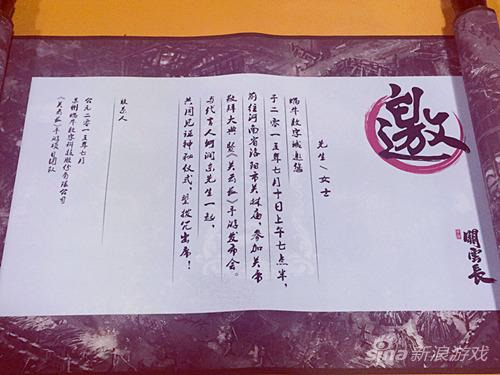 邀
關雲長
先生/女士
蜗牛数字诚邀您
于二零一五年七月十日上午七点半,
前往河南省洛阳市关林庙,参加关帝
敬拜大典 暨《关云长》手游发布会。
与代言人何润东先生一起,
共同见证神秘仪式,望拨冗出席!
联系人
公元二零一五年七月
苏州蜗牛数字科技股份有限公司
《关云长》手游项目团队
sina新浪游戏